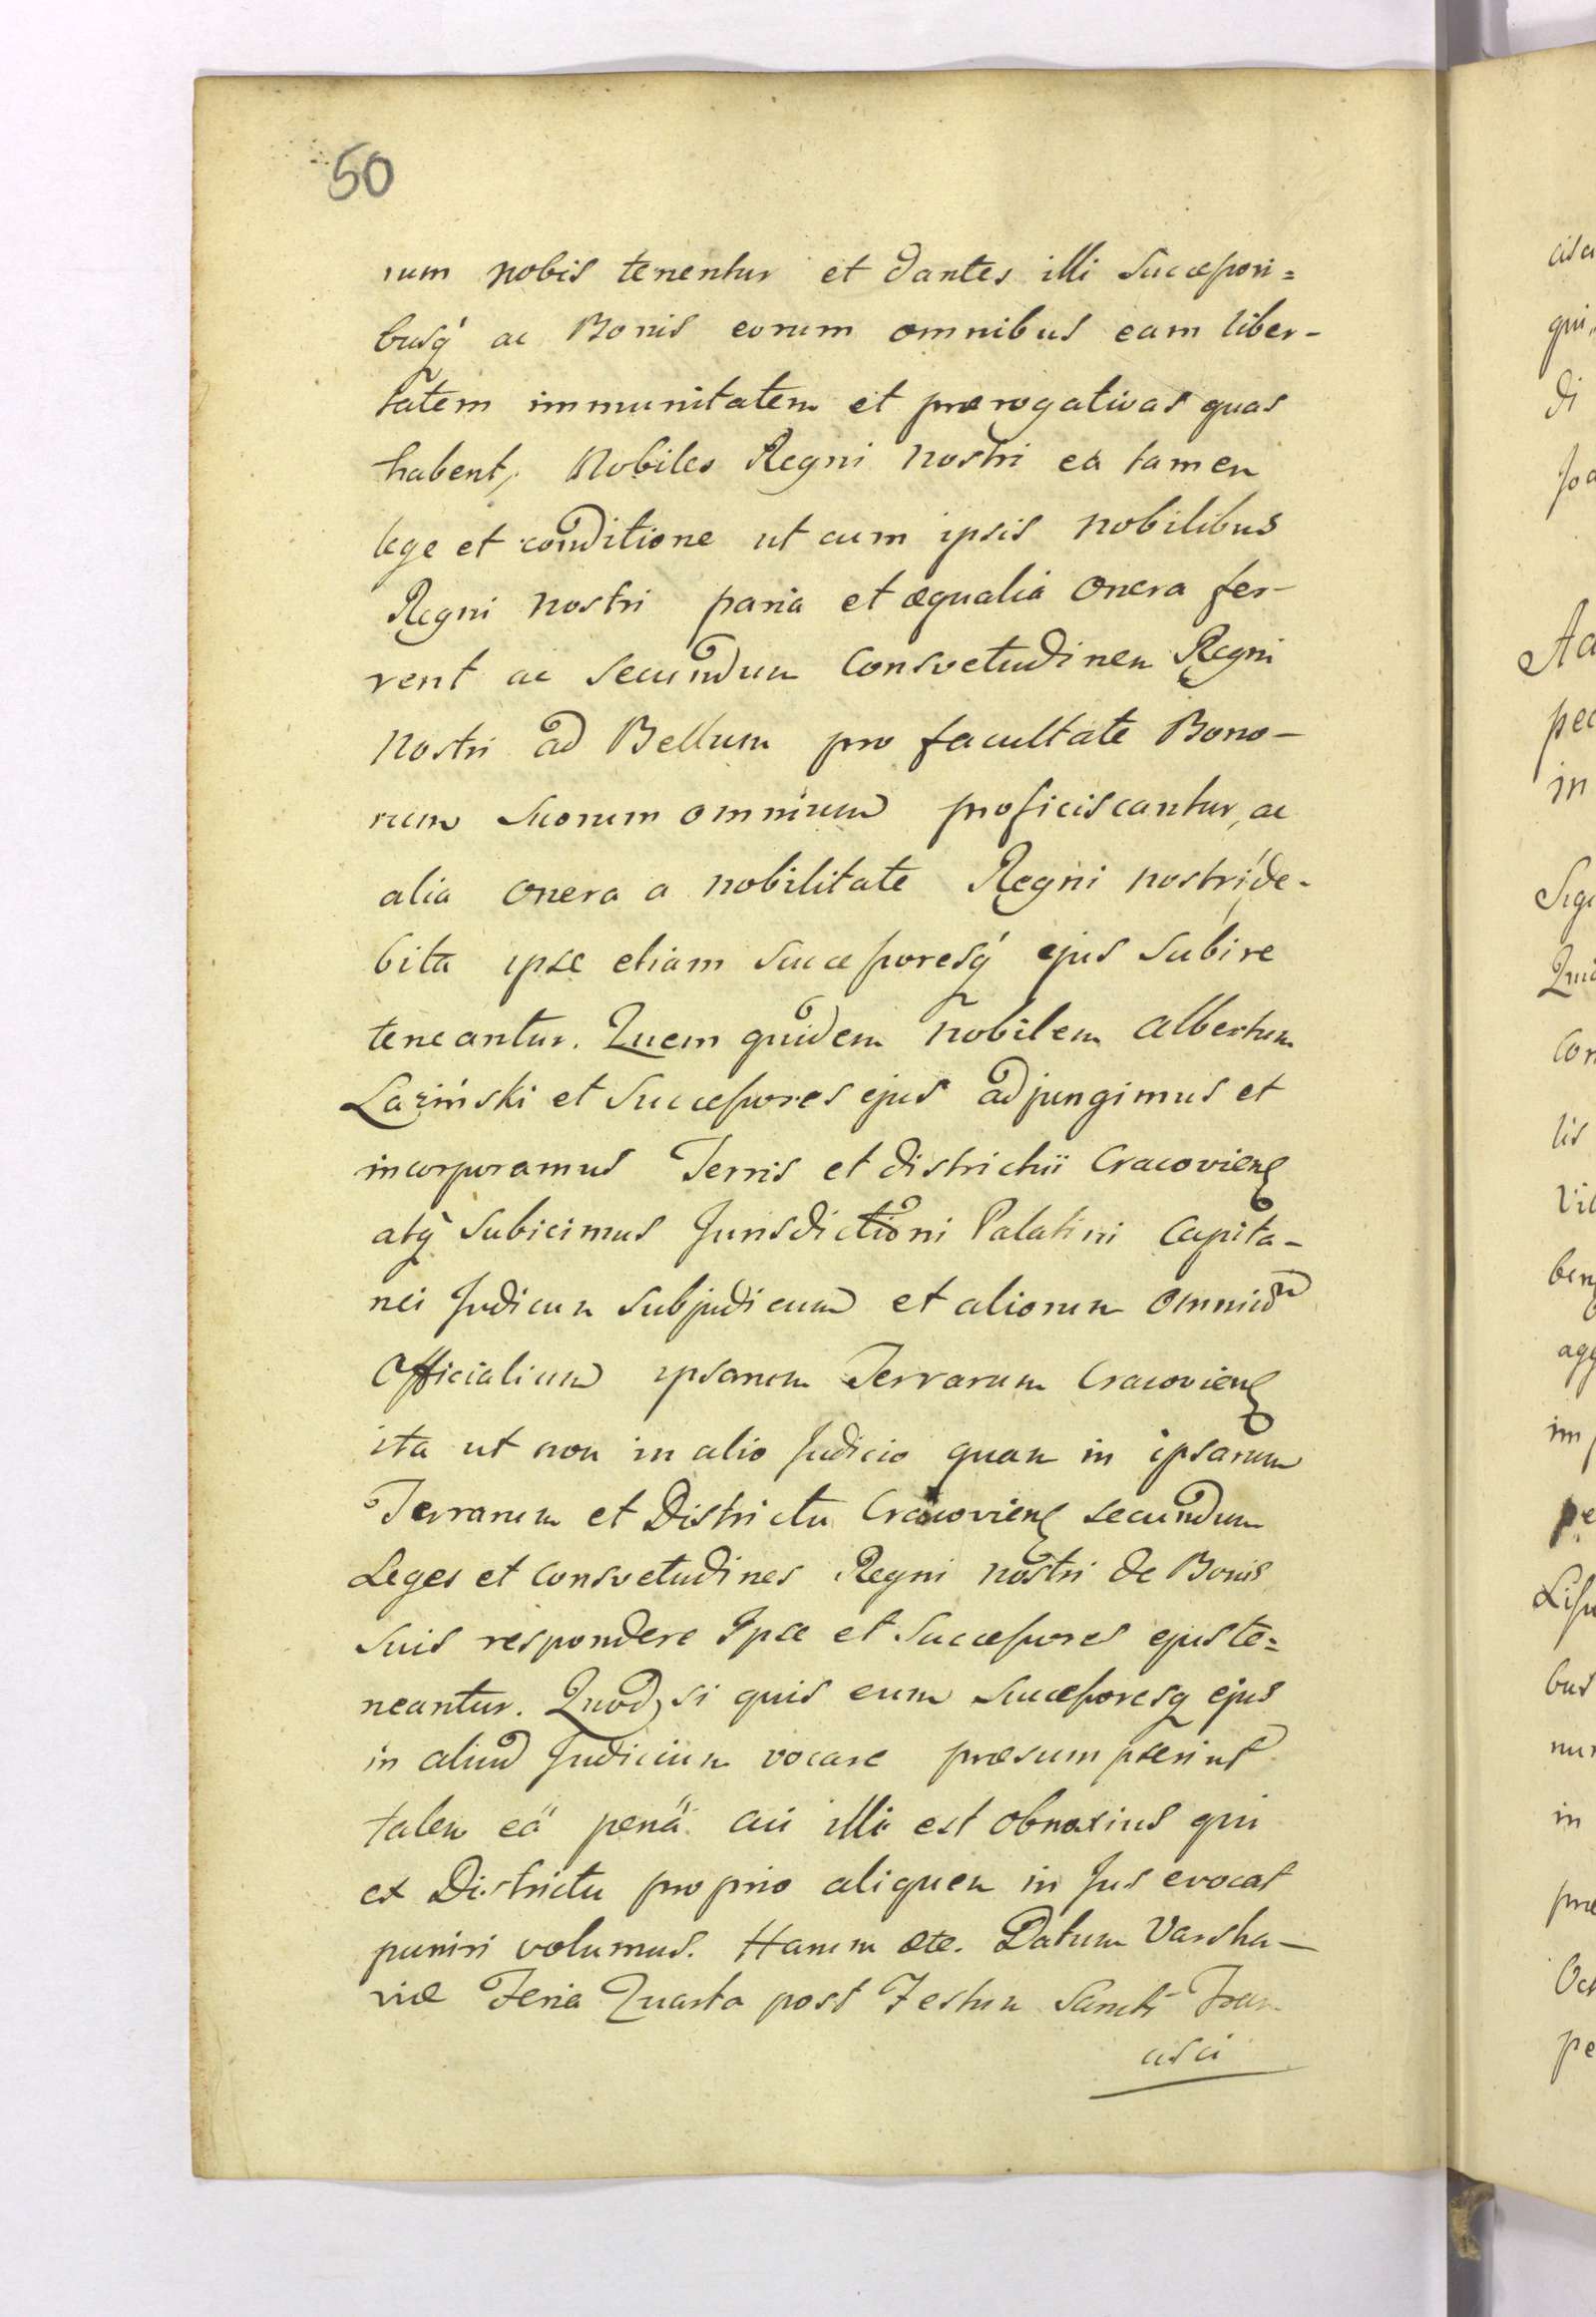 50
rum nobis tenentur et dantes illi Successori=
busq́ ac Bonis eorum omnibus eam liber-
tatem immunitatem et prærogativas quas
habent, Nobiles Regni Nostri ea tamen
lege et conditione ut cum ipsis nobilibus
Regni Nostri paria et æqualia onera fer-
rent ac secundum Consvetudinem Regni
Nostri ad Bellum pro facultate Bono-
rum Suorum omnium proficiscantur, ac
alia onera a nobilitate Regni nostri de-
bita ipse etiam Successoresq́ ejus Subire
teneantur. Quem quidem Nobilem Albertum
Laziński et Successores ejus adjungimus et
incorporamus Terris et districtui Cracovien
atq́ Subicimus Jurisdictioni Palatini Capita-
nei Judicum Subjudicum et aliorum omnium
Officialium ipsarum Terrarum Cracovien
ita ut non in alio Judicio quam in ipsarum
Terrarum et Districtu Cracovien secundum
Leges et Consvetudines Regni nostri de Bonis
Suis respondere Ipse et Successores ejus te=
neantur. Quod si quis eum Successoresq ejus
in aliud Judicium vocare præsumpserint
talem eä penä cui illi est obnoxius qui
ex Districtu proprio aliquem in Jus evocat
puniri volumus. Harum etc. Datum Varsha-
viæ Feria Quarta post Festum Sancti Fran
cisci